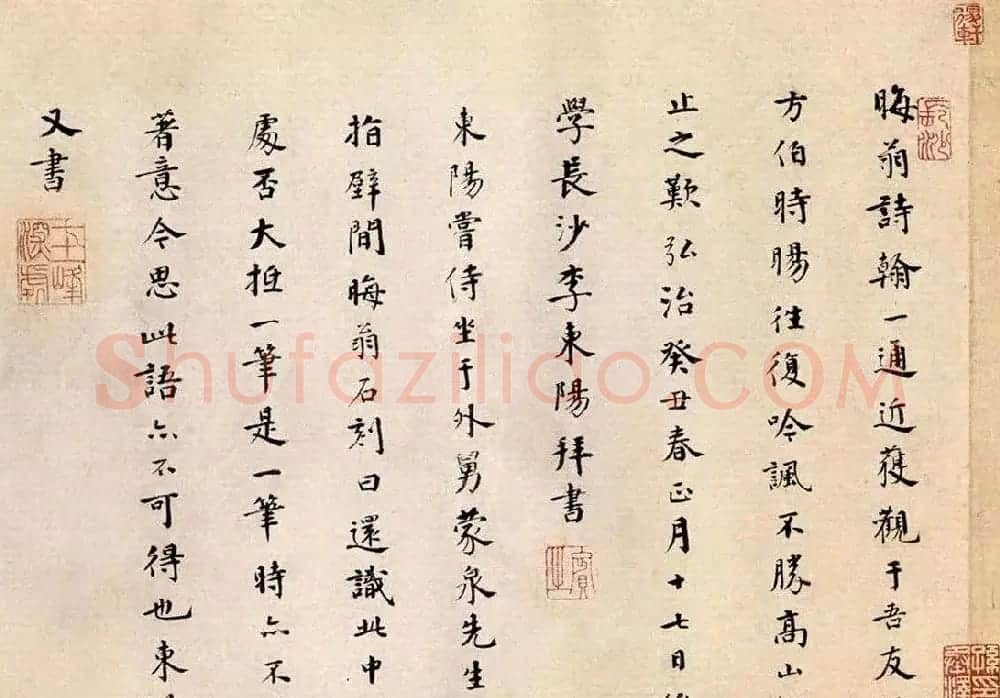 晦翁詩翰一通近獲觀于吾友
方伯時暘往復吟諷不勝高山
止之歎弘治癸丑春正月十七日後
學長沙李東陽拜書
東陽嘗侍坐于外舅蒙泉先生
指壁間晦翁石刻曰還識此中
處否大抵一筆是一筆時亦不
著意今思此語亦不可得也東
又書
長沙
賓之
Shufazilido.COM